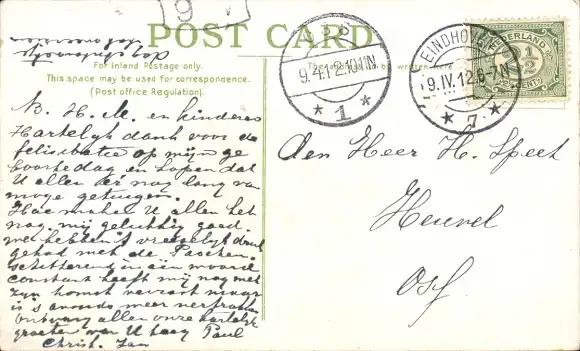 POST CARD
For Inland Postage only.
This space may be used for correspondence.
(Post Office Regulation).
The address to be written here
OSS
9.4.12.10-11N
1
EINDHOVEN
9.IV.12.6-7N
7
NEDERLAND
2½
CENT
B. H. M. en kinderen
Hartelijk dank voor de
felicitatie op mijn ge
boortedag en hopen dat
U allen er nog lang van
moge getuigen.
Hoe maken U allen het
nog. mij gelukkig goed.
we hebben't vreeselijk druk
gehad met de Paschen.
schitterend in één woord
constant heeft mij nog met
zijn komst maar
is 's avonds weer
Ontvang allen onze hartelijke
groeten van U toeg Paul
Christ. Jan
Den Heer H. Speet
Heuvel
Oss